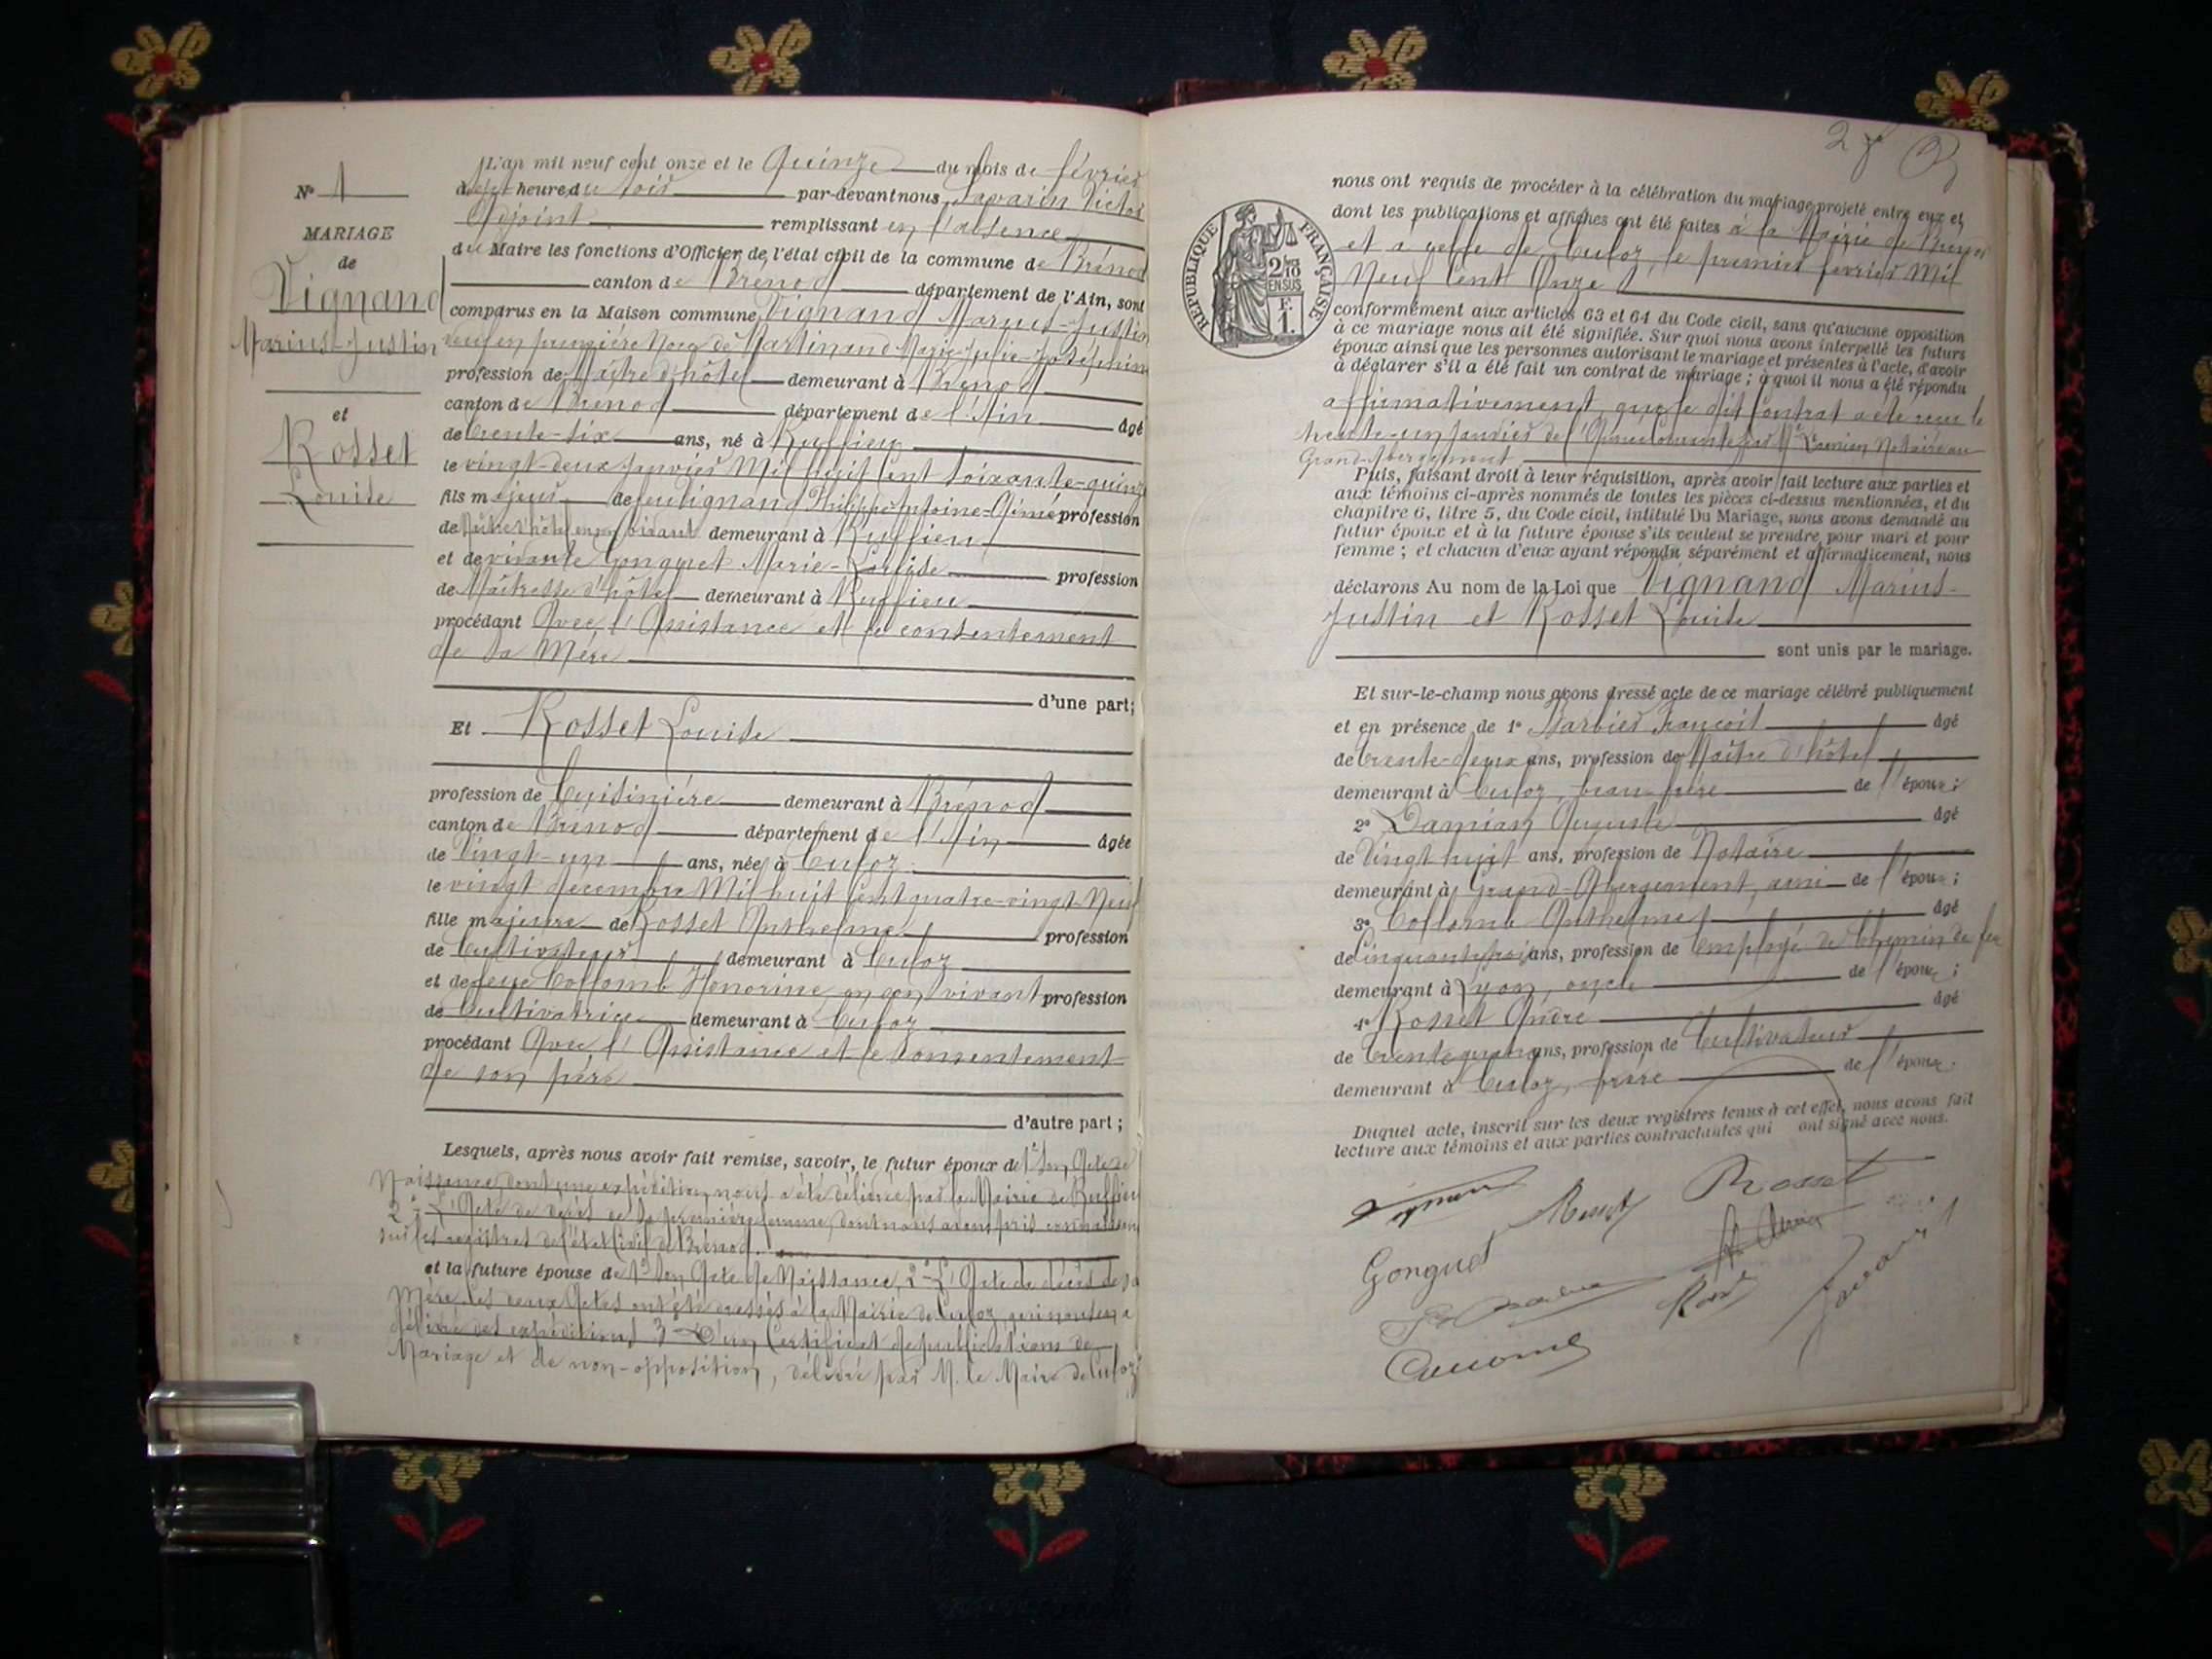 N° 1
MARIAGE
de
Vignand
Marius-Justin
et
Rosset
Louise
L'an mil neuf cent onze et le Quinze du mois de février
heure du soir par-devant nous, Savarin Victor
Adjoint remplissant en l'absence
du Maire les fonctions d'Officier de l'état civil de la commune de Brénod
canton de Brénod département de l'Ain, sont
comparus en la Maison commune Vignand Marius-Justin
veuf en première Noce de Martinand Marie-Julie-Joséphine
profession de Maître d'hôtel demeurant à Brénod
canton de Brénod département de l'Ain âgé
de trente-six ans, né à Ruffieu
le vingt-deux Janvier Mil huit Cent Soixante-quinze
fils majeur de feu Vignand Philippe-Antoine-Aimé profession
de Maître d'hôtel en son vivant demeurant à Ruffieu
et de vivante Gonguet Marie-Louise profession
de Maîtresse d'hôtel demeurant à Ruffieu
procédant Avec l'Assistance et le consentement
de sa Mère
d'une part;
Et Rosset Louise
profession de Cuisinière demeurant à Brénod
canton de Brénod département de l'Ain âgée
de Vingt-un ans, née à Culoz
le vingt décembre Mil huit Cent quatre-vingt-Neuf
fille majeure de Rosset Anthelme profession
de Cultivateur demeurant à Culoz
et de feue Collomb Honorine en son vivant profession
de Cultivatrice demeurant à Culoz
procédant Avec l'Assistance et le Consentement
de son père
d'autre part;
Lesquels, après nous avoir fait remise, savoir, le futur époux de 1° Son Acte de
Naissance, dont une expédition nous a été délivrée par la Mairie de Ruffieu
2° L'Acte de décès de sa première femme, dont nous avons pris connaissance
sur les registres de l'état Civil de Brénod.
et la future épouse de 1° Son Acte de Naissance, 2° L'Acte de décès de sa
Mère, les deux Actes ont été dressés à la Mairie de Culoz, qui nous en a
délivré des expéditions, 3° D'un Certificat de publications de
Mariage et de non-opposition, délivré par M. le Maire de Culoz
28
nous ont requis de procéder à la célébration du mariage projeté entre eux et
dont les publications et affiches ont été faites à la Mairie de Brénod
et à celle de Culoz, le premier février Mil
Neuf Cent Onze
REPUBLIQUE FRANÇAISE
2/10
EN SUS
F.
1.
conformément aux articles 63 et 64 du Code civil, sans qu'aucune opposition
à ce mariage nous ait été signifiée. Sur quoi nous avons interpellé les futurs
époux ainsi que les personnes autorisant le mariage et présentes à l'acte, d'avoir
à déclarer s'il a été fait un contrat de mariage; à quoi il nous a été répondu
affirmativement, que le dit Contrat a été reçu le
trente-un Janvier de l'Année Courante par Me Damian Notaire au
Grand-Abergement
Puis, faisant droit à leur réquisition, après avoir fait lecture aux parties et
aux témoins ci-après nommés de toutes les pièces ci-dessus mentionnées, et du
chapitre 6, titre 5, du Code civil, intitulé Du Mariage, nous avons demandé au
futur époux et à la future épouse s'ils veulent se prendre pour mari et pour
femme; et chacun d'eux ayant répondu séparément et affirmativement, nous
déclarons Au nom de la Loi que Vignand Marius-
Justin et Rosset Louise
sont unis par le mariage.
Et sur-le-champ nous avons dressé acte de ce mariage célébré publiquement
et en présence de 1° François âgé
de trente-deux ans, profession de Maître d'hôtel
demeurant à Culoz, beau-frère de l'épouse;
2° Damian Auguste âgé
de Vingt huit ans, profession de Notaire
demeurant à Grand-Abergement, ami de l'époux;
3° Collomb Anthelme âgé
de Cinquante trois ans, profession de Employé de Chemin de fer
demeurant à Lyon, oncle de l'épouse;
4° Rosset André âgé
de trente quatre ans, profession de Cultivateur
demeurant à Culoz, frère de l'épouse.
Duquel acte, inscrit sur les deux registres tenus à cet effet, nous avons fait
lecture aux témoins et aux parties contractantes qui ont signé avec nous.
Rosset
Gonguet